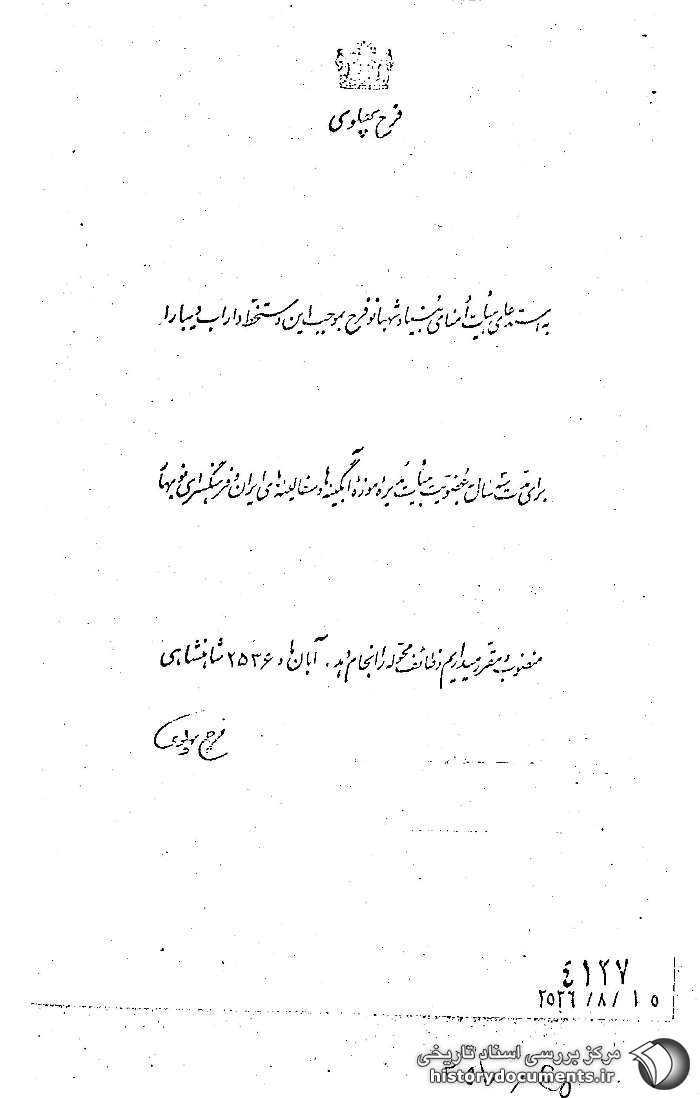 فرح پهلوی
به استدعای هیأت امنای بنیاد شهبانو فرح بموجب این دستخط داراب دیبا را
برای مدت سه سال به عضویت هیأت مدیره موزه آبگینه ها و سفالینه های ایران و فرهنگسرای نوبهار
منصوب و مقرر میداریم وظائف محوله را انجام دهد. آبان ماه ۲۵۳۶ شاهنشاهی
فرح پهلوی
۴۱۲۷
۲۵۳۶/۸/۱۵
مرکز بررسی اسناد تاریخی
historydocuments.ir